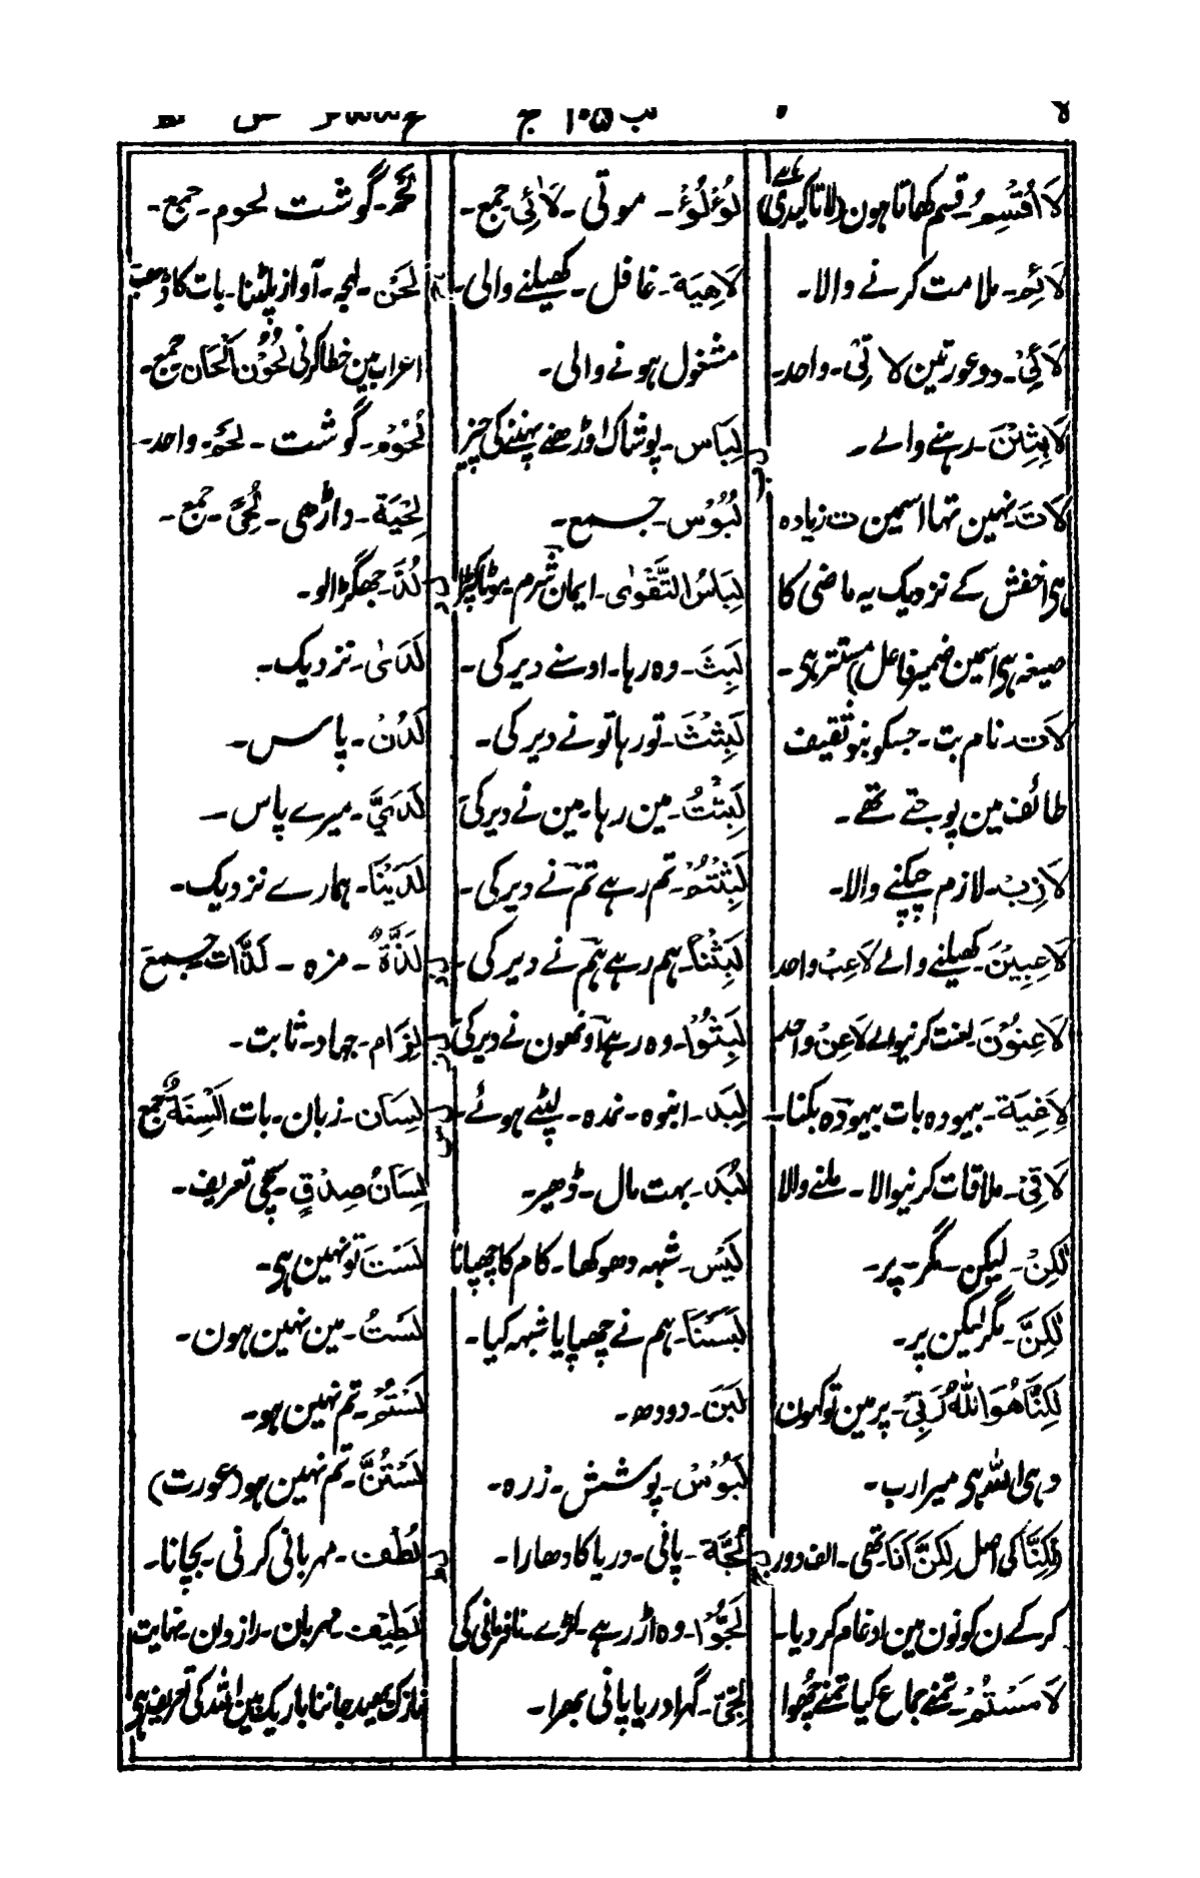 لا ب ۱۰۵ ج
لَا أُقْسِمُ۔ قسم کھاتا ہون (لا تاکیدی)
لَائِم۔ ملامت کرنے والا۔
لَائِیْ۔ دو عورتین لاتی۔ واحد۔
لَابِثِیْنَ۔ رہنے والے۔
لَاتَ۔ نہین تھا اسمین ت زیادہ
ہی اخفش کے نزدیک یہ ماضی کا
صیغہ ہی اسمین ضمیر فاعل مستتر ہی۔
لَات۔ نام بت۔ جسکو بنو ثقیف
طائف مین پوجتے تھے۔
لَازِب۔ لازم چپکنے والا۔
لَاعِبِیْنَ۔ کھیلنے والے لَاعِبْ واحد
لَاعِنُوْنَ۔ لعنت کرنیوالے لَاعِنْ واحد
لَاغِیَة۔ بیہودہ بات بیہودہ بکنا۔
لَاقِیْ۔ ملاقات کرنیوالا۔ ملنے والا
لٰکِنْ۔ لیکن۔ مگر۔ پر۔
لٰکِنَّ۔ مگر لیکن پر۔
لٰکِنَّا هُوَ اللّٰهُ رَبِّیْ۔ پر مین تو کہون
وہی اللہ ہی میرا رب۔
(لٰکِنَّا کی اصل لٰکِنَّ اَنَا تھی۔ الف دور
کرکے ن کو نون مین ادغام کر دیا۔
لَامَسْتُمْ۔ تمنے جماع کیا تمنے چھوا
لُؤْلُؤْ۔ موتی۔ لَاٰلِئ جمع۔
لَاهِیَة۔ غافل۔ کھیلنے والی۔
مشغول ہونے والی۔
لِبَاس۔ پوشاک اوڑھنے پہننے کی چیز
لُبُوْس۔ جمع۔
لِبَاسُ التَّقْوٰی۔ ایمان شرم۔ موٹا کپڑا
لَبِثَ۔ وہ رہا۔ اوسنے دیر کی۔
لَبِثْتَ۔ تو رہا تو نے دیر کی۔
لَبِثْتُ۔ مین رہا۔ مین نے دیر کی
لَبِثْتُمْ۔ تم رہے تم نے دیر کی۔
لَبِثْنَا۔ ہم رہے ہم نے دیر کی۔
لَبِثُوْا۔ وہ رہے اونھون نے دیر کی
لِبَد۔ انبوہ۔ نمدہ۔ لپٹے ہوئے۔
لُبَد۔ بہت مال۔ ڈھیر۔
لَبْس۔ شبہہ دھوکھا۔ کام کا چھپانا
لَبَسْنَا۔ ہم نے چھپایا شبہہ کیا۔
لَبَن۔ دودھ۔
لَبُوْس۔ پوشش۔ زرہ۔
لُجَّة۔ پانی۔ دریا کا دھارا۔
لَجُّوْا۔ وہ اڑ رہے۔ لڑے۔ نافرمانی کی
لُجِّیّ۔ گہرا دریا پانی بھرا۔
لَحْم۔ گوشت لحوم۔ جمع۔
لَحْن۔ لہجہ۔ آواز پلٹنا۔ بات کا ڈھب
اعراب مین خطا کرنی لُحُوْن اَلْحَان جمع۔
لُحُوْم۔ گوشت۔ لَحْم۔ واحد۔
لِحْیَة۔ داڑھی۔ لُحیً۔ جمع۔
لُدّ۔ جھگڑالو۔
لَدٰی۔ نزدیک۔
لَدُنْ۔ پاس۔
لَدَیَّ۔ میرے پاس۔
لَدَیْنَا۔ ہمارے نزدیک۔
لَذَّةٌ۔ مزہ۔ لَذَّات جمع
لِزَام۔ جہاد۔ ثابت۔
لِسَان۔ زبان۔ بات اَلْسِنَةٌ جمع
لِسَانُ صِدْقٍ۔ سچی تعریف۔
لَسْتَ تو نہین ہی۔
لَسْتُ۔ مین نہین ہون۔
لَسْتُمْ۔ تم نہین ہو۔
لَسْتُنَّ۔ تم نہین ہو (عورت)
لُطْف۔ مہربانی کرنی۔ بچانا۔
لَطِیْف۔ مہربان۔ رازدان۔ نہایت
نازک بھید جاننا باریک بین اللہ کی تعریف ہی